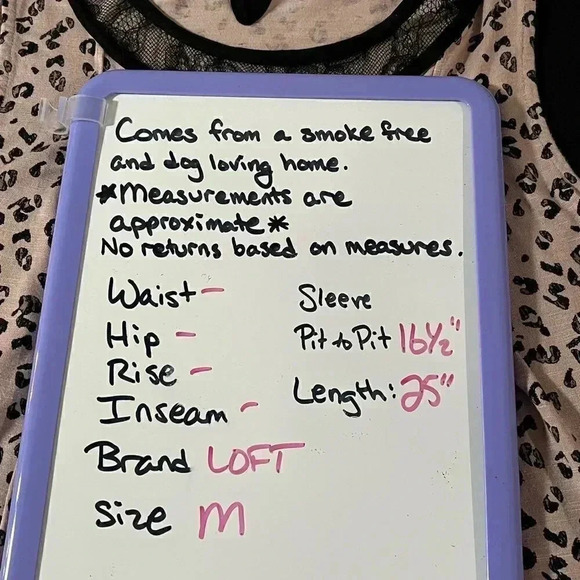 Comes from a smoke free
and dog loving home.
*Measurements are
approximate*
No returns based on measures.
Waist -
Hip -
Rise -
Inseam -
Sleeve
Pit to Pit 16½"
Length: 25"
Brand LOFT
Size M